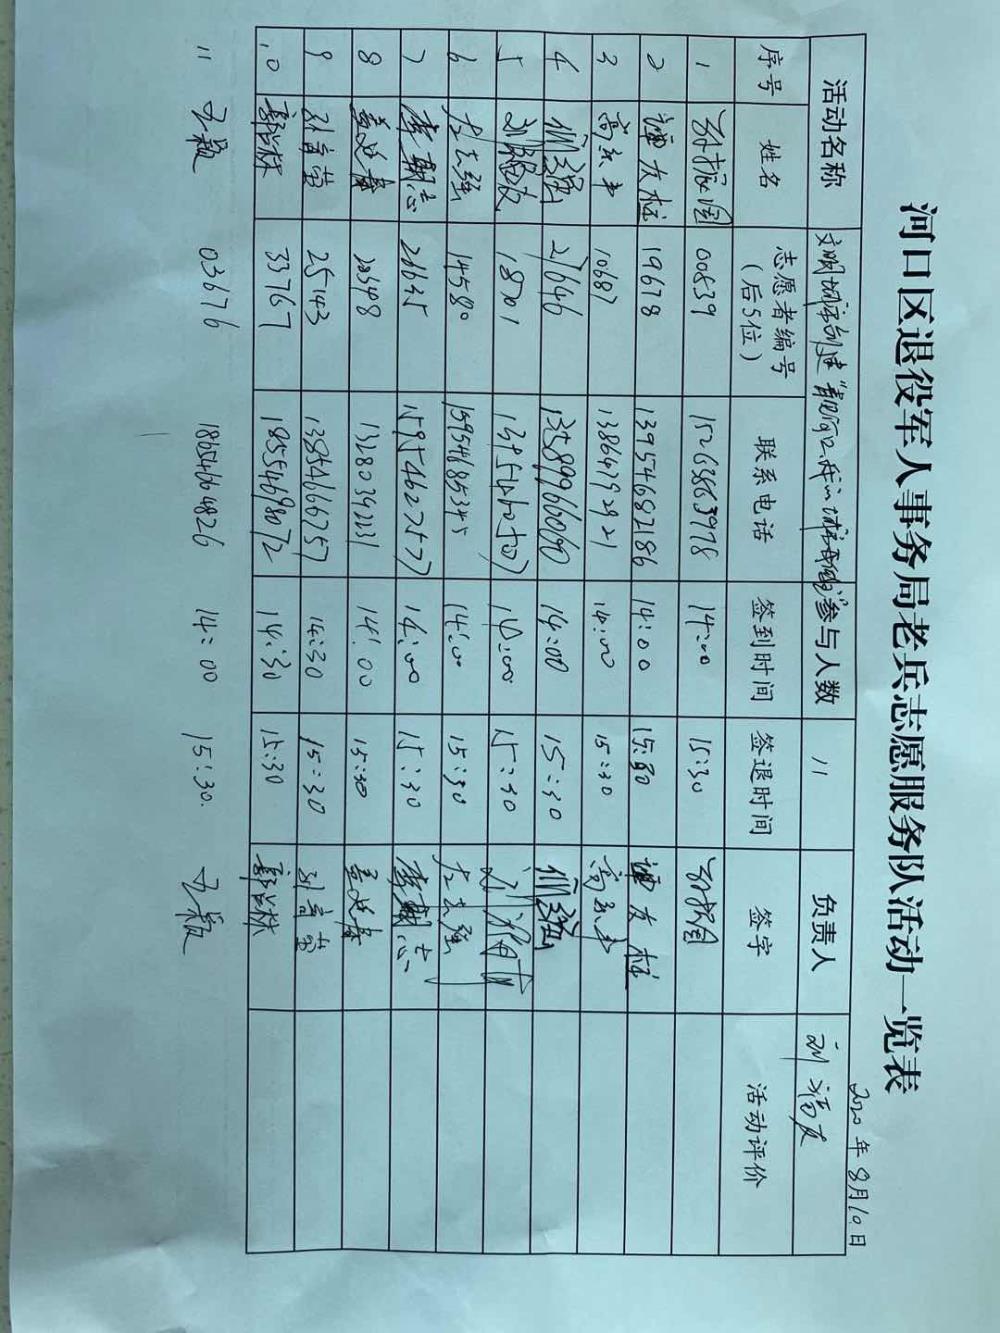 河口区退役军人事务局老兵志愿服务队活动一览表
2020年8月10日
活动名称 文明城市创建 参与人数 11 负责人 刘福友
序号 姓名 志愿者编号（后5位） 联系电话 签到时间 签退时间 签字 活动评价
1 00839 15263863978 14:00 15:30
2 谭友柱 19678 13954682186 14:00 15:30 谭友柱
3 10687 13864792921 14:00 15:30
4 27646 13589966090 14:00 15:30
5 刘福友 18701 14:00 15:30
6 左志强 14580 15954685345 14:00 15:30 左志强
7 李朝志 21635 15954627577 14:00 15:30 李朝志
8 20348 13280392231 14:00 15:30
9 25143 13854666757 14:30 15:30
10 33767 18554698072 14:30 15:30
11 王颖 03676 18654604826 14:00 15:30. 王颖